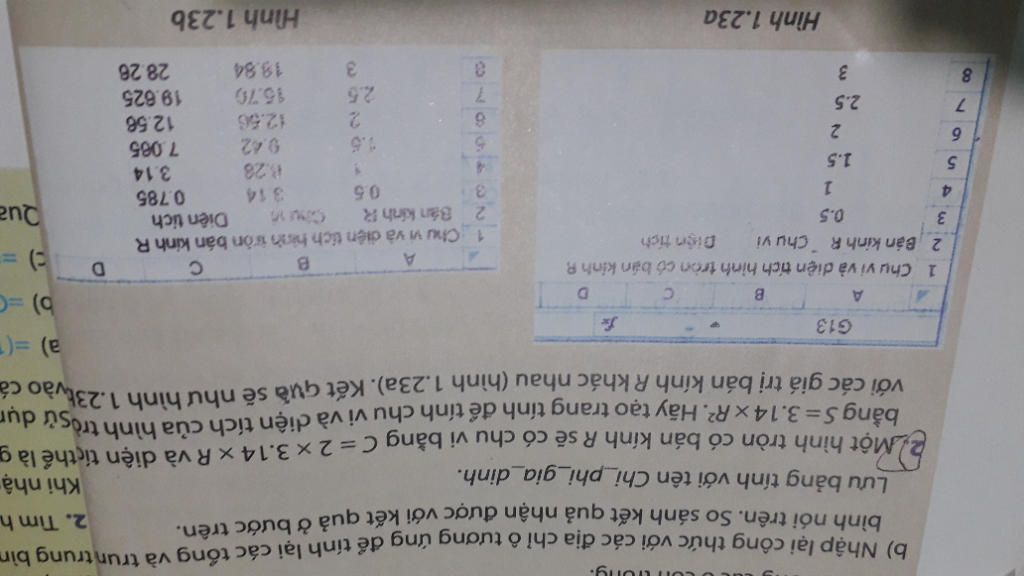 b) Nhập lại công thức với các địa chỉ ô tương ứng để tính lại các tổng và trung
bình nói trên. So sánh kết quả nhận được với kết quả ở bước trên.
Lưu bảng tính với tên Chi_phi_gia_dinh.
2. Một hình tròn có bán kính R sẽ có chu vi bằng C = 2 × 3.14 × R và diện tích
bằng S = 3.14 × R². Hãy tạo trang tính để tính chu vi và diện tích của hình tròn
với các giá trị bán kính R khác nhau (hình 1.23a). Kết quả sẽ như hình 1.23b.
G13 fx
A B C D
1 Chu vi và diện tích hình tròn có bán kính R
2 Bán kính R Chu vi Diện tích
3 0.5
4 1
5 1.5
6 2
7 2.5
8 3
Hình 1.23a
A B C D
1 Chu vi và diện tích hình tròn bán kính R
2 Bán kính R Chu vi Diện tích
3 0.5 3.14 0.785
4 1 6.28 3.14
5 1.5 9.42 7.065
6 2 12.56 12.56
7 2.5 15.70 19.625
8 3 18.84 28.26
Hình 1.23b
2. Tìm h
Khi nhậ
thể là g
Sử dụn
vào cá
a) =(
b) =
c) =
Qua